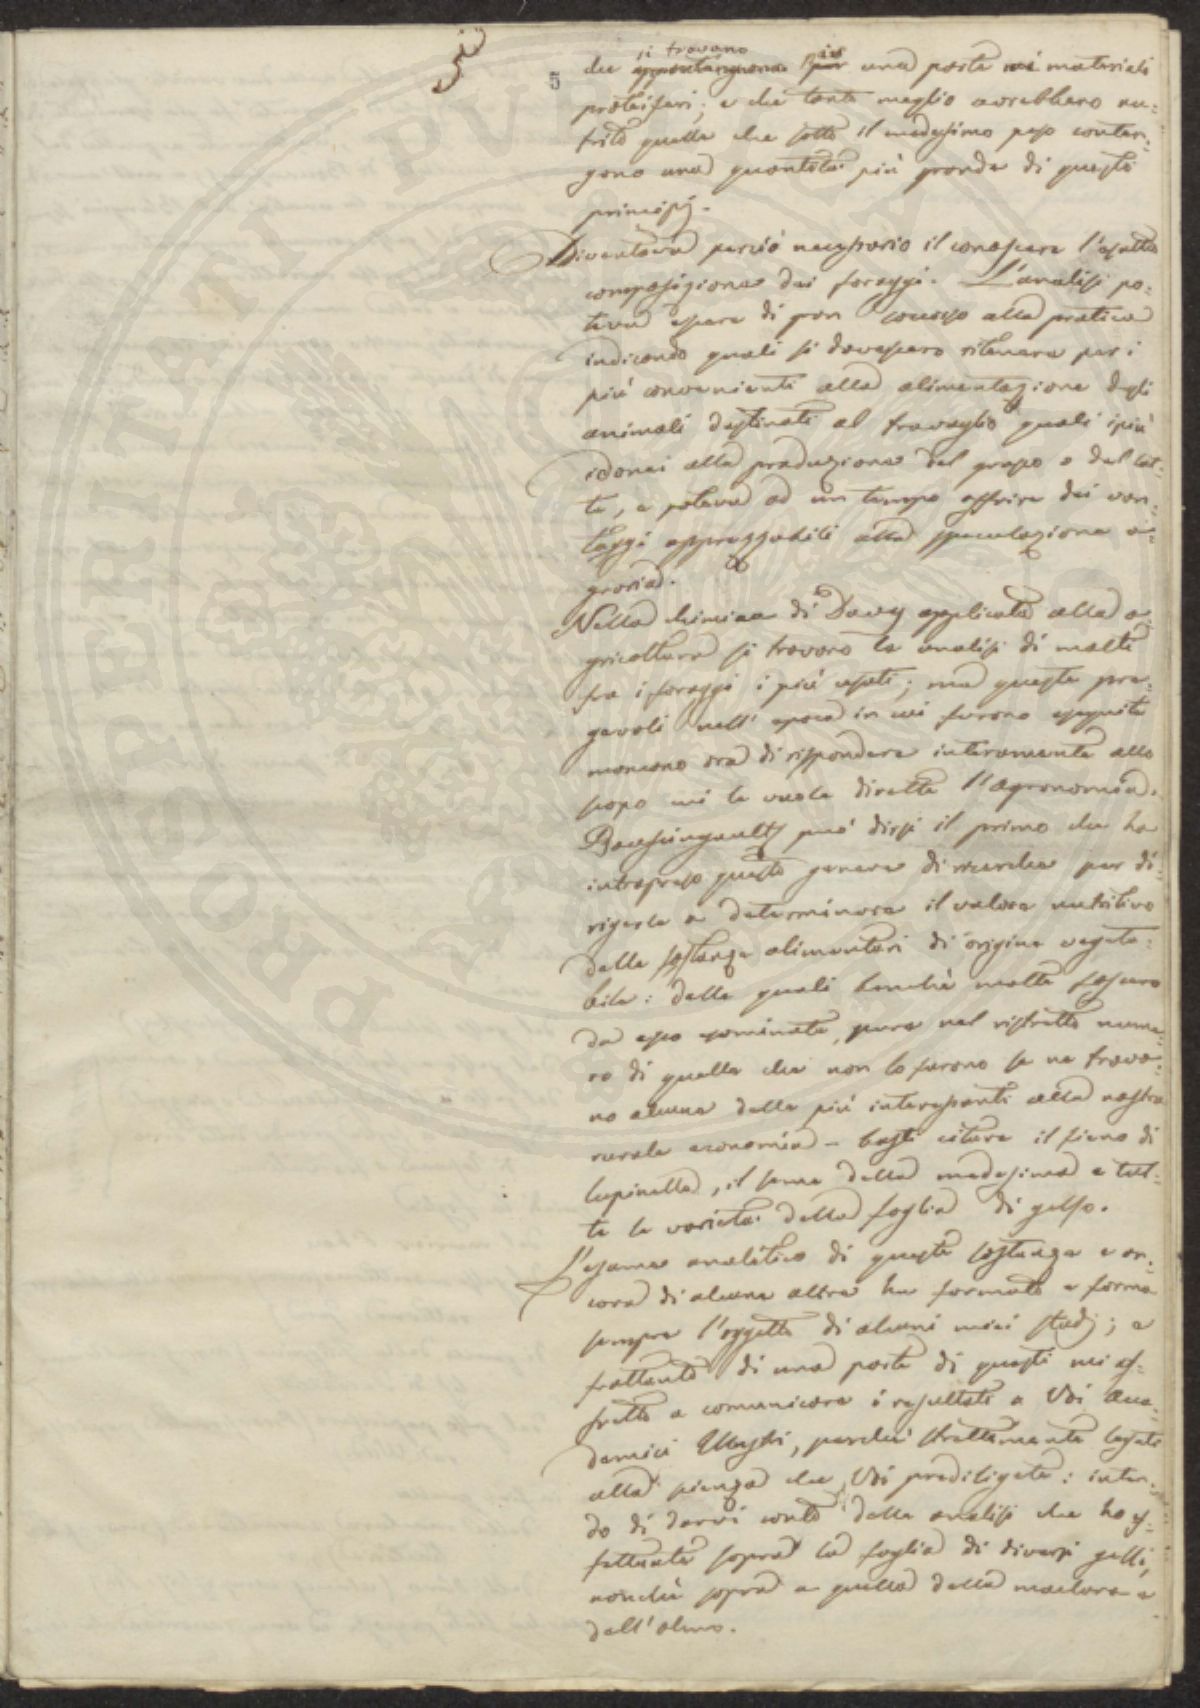 5
si trovano in
che appartengono per una parte ai materiali
proteiferi; e che tanto meglio avrebbero nu-
trito quelle che sotto il medesimo peso conten-
gono una quantità più grande di questi
principj.
Diventava perciò necessario il conoscere l'esatta
composizione dei foraggi. L'analisi po-
teva essere di gran soccorso alla pratica
indicando quali si dovessero ritenere per i
più convenienti alla alimentazione degli
animali destinati al travaglio quali i più
idonei alla produzione del grasso e del lat-
te, e poteva ad un tempo offrire dei van-
taggi apprezzabili alla speculazione a-
graria.
Nella chimica di Davy applicata alla a-
gricoltura si trovano le analisi di molti
fra i foraggi i più usati; ma queste pre-
gevoli nell'epoca in cui furono eseguite
mancano ora di rispondere interamente allo
scopo cui le vuole dirette l'agronomia.
Boussingault può dirsi il primo che ha
intrapreso questo genere di ricerche per di-
rigerle a determinare il valore nutritivo
delle sostanze alimentari di origine vegeta-
bile: delle quali benchè molte fossero
da esso esaminate, pure nel ristretto nume-
ro di quelle che non lo furono se ne trova-
no alcune delle più interessanti alla nostra
rurale economia - basti citare il fieno di
lupinella, il seme della medesima e tut-
te le varietà della foglia di gelso.
L'esame analitico di queste sostanze e an-
cora di alcune altre ha formato e forma
sempre l'oggetto di alcuni miei studj; e
frattanto di una parte di questi mi af-
fretto a comunicare i resultati a Voi Acca-
demici Illustri, perchè strettamente legati
alla scienza che Voi prediligete: inten-
do di darvi conto delle analisi che ho ef-
fettuate sopra la foglia di diversi gelsi,
nonchè sopra a quella della maclura e
dell'olmo.